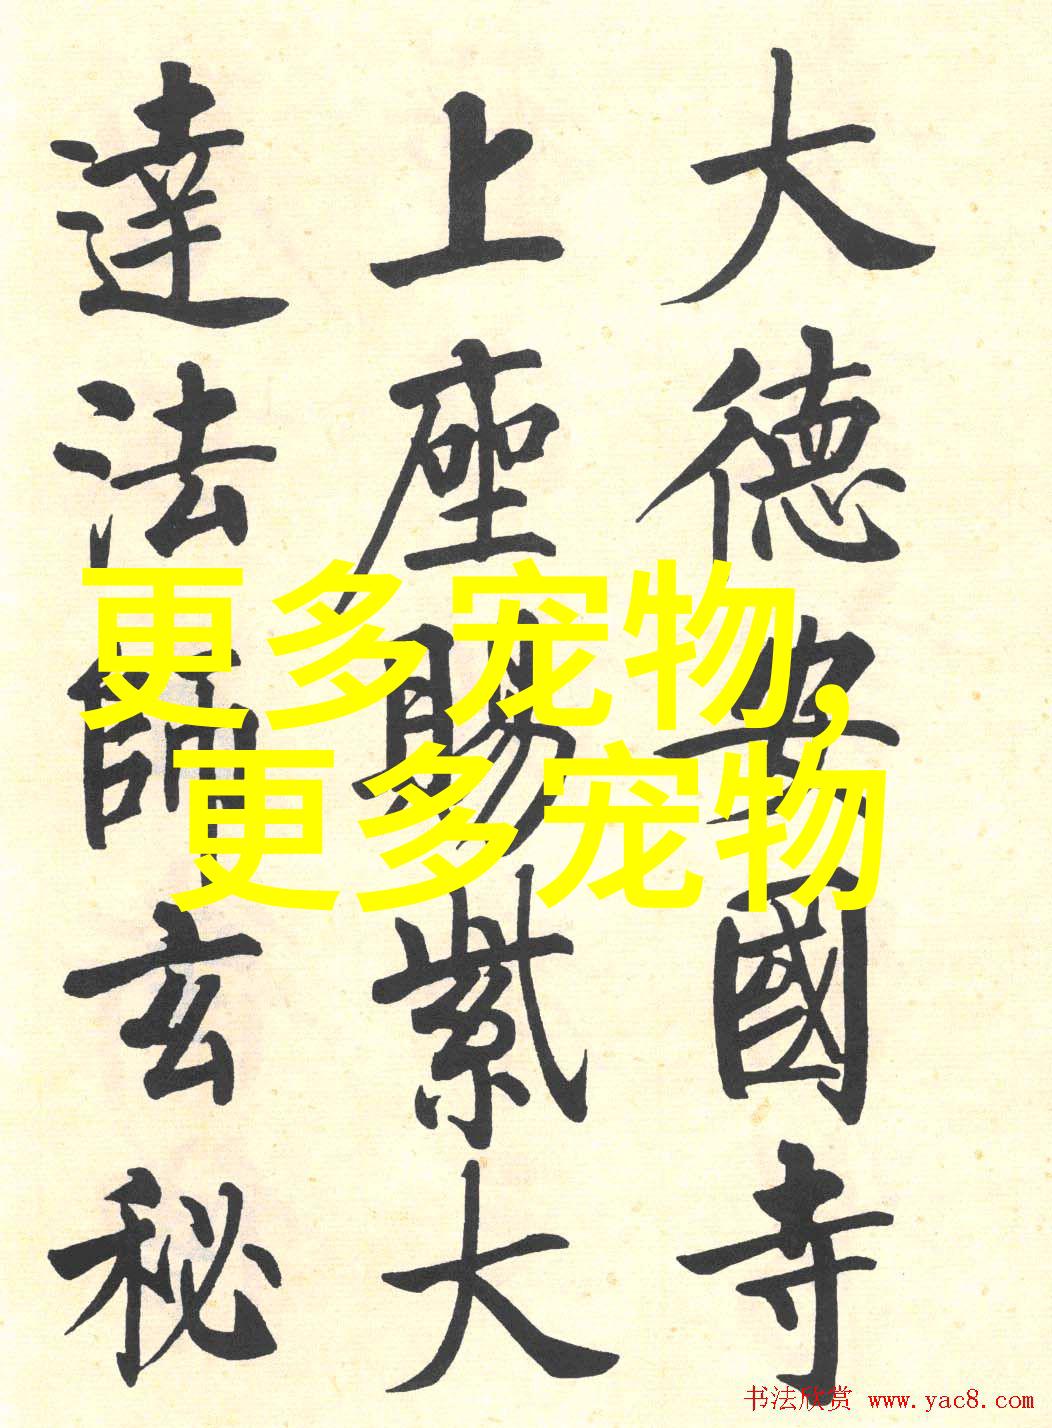 大德安國寺
上座賜紫大
達法師玄秘
更多宠物,
更多宠物
书法欣赏 www.yac8.com